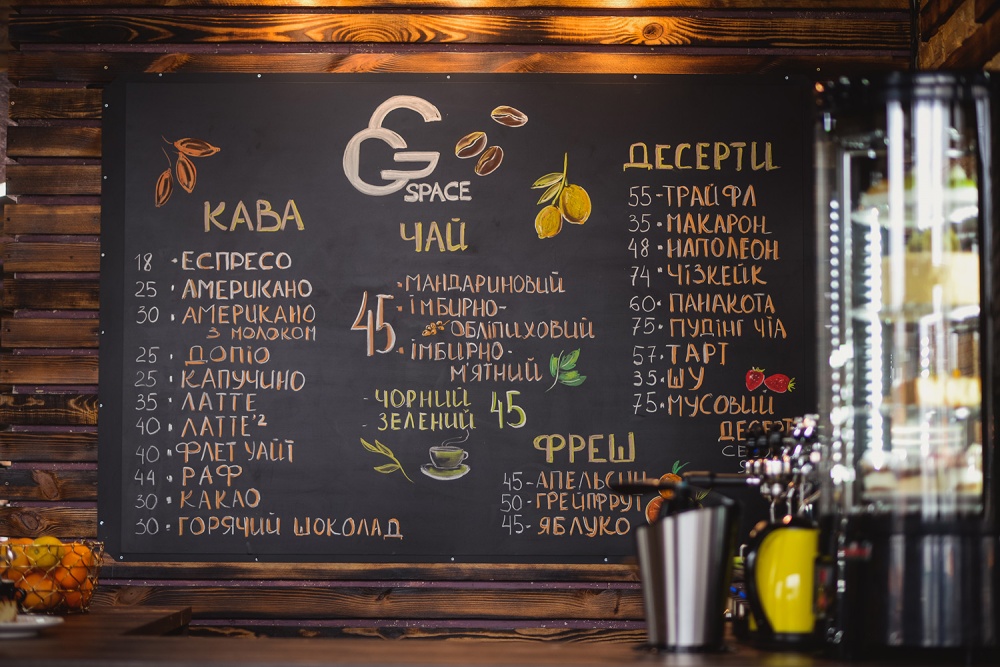 G SPACE
КАВА
18 • ЕСПРЕСО
25 • АМЕРИКАНО
30 • АМЕРИКАНО
З МОЛОКОМ
25 • ДОПІО
25 • КАПУЧИНО
35 • ЛАТТЕ
40 • ЛАТТЕ'²
40 • ФЛЕТ УАЙТ
44 • РАФ
30 • КАКАО
30 • ГОРЯЧИЙ ШОКОЛАД
ЧАЙ
• МАНДАРИНОВИЙ
45 • ІМБИРНО-
ОБЛІПИХОВИЙ
• ІМБИРНО-
М'ЯТНИЙ
- ЧОРНИЙ
- ЗЕЛЕНИЙ 45
ДЕСЕРТИ
55 - ТРАЙФЛ
35 • МАКАРОН
48 • НАПОЛЕОН
74 • ЧІЗКЕЙК
60 • ПАНАКОТА
75 • ПУДІНГ ЧІА
57 • ТАРТ
35 • ШУ
75 • МУСОВИЙ
ФРЕШ
45 - АПЕЛЬСИН
50 - ГРЕЙПФРУТ
45 - ЯБЛУКО